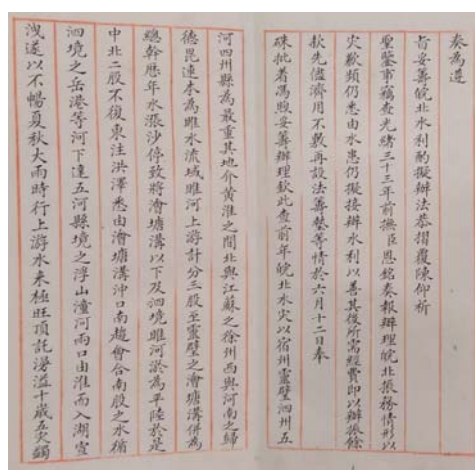 奏為遵
旨妥籌皖北水利酌擬辦法恭摺覆陳仰祈
聖鑒事竊查光緒三十三年前撫臣恩銘奏報辦理皖北振務情形以
災歉頻仍悉由水患仍擬接辦水利以善其後所需經費即以辦振餘
款先儘濟用不敷再設法籌墊等情於六月十二日奉
硃批着馮煦妥籌辦理欽此查前年皖北水災以宿州靈璧泗州五
河四州縣為最重其地介黃淮之間北與江蘇之徐州西與河南之歸
德毘連本為睢水流域睢河上游計分三股至靈璧之澮塘溝併為
總幹歷年水漲沙停致將澮塘溝以下及泗境睢河淤為平陸於是
中北二股不復東注洪澤悉由澮塘溝沖口南趨會合南股之水循
泗境之岳港等河下達五河縣境之浮山潼河兩口由淮而入湖宣
洩遂以不暢夏秋大雨時行上游水來極旺頂託漫溢十歲五災蠲